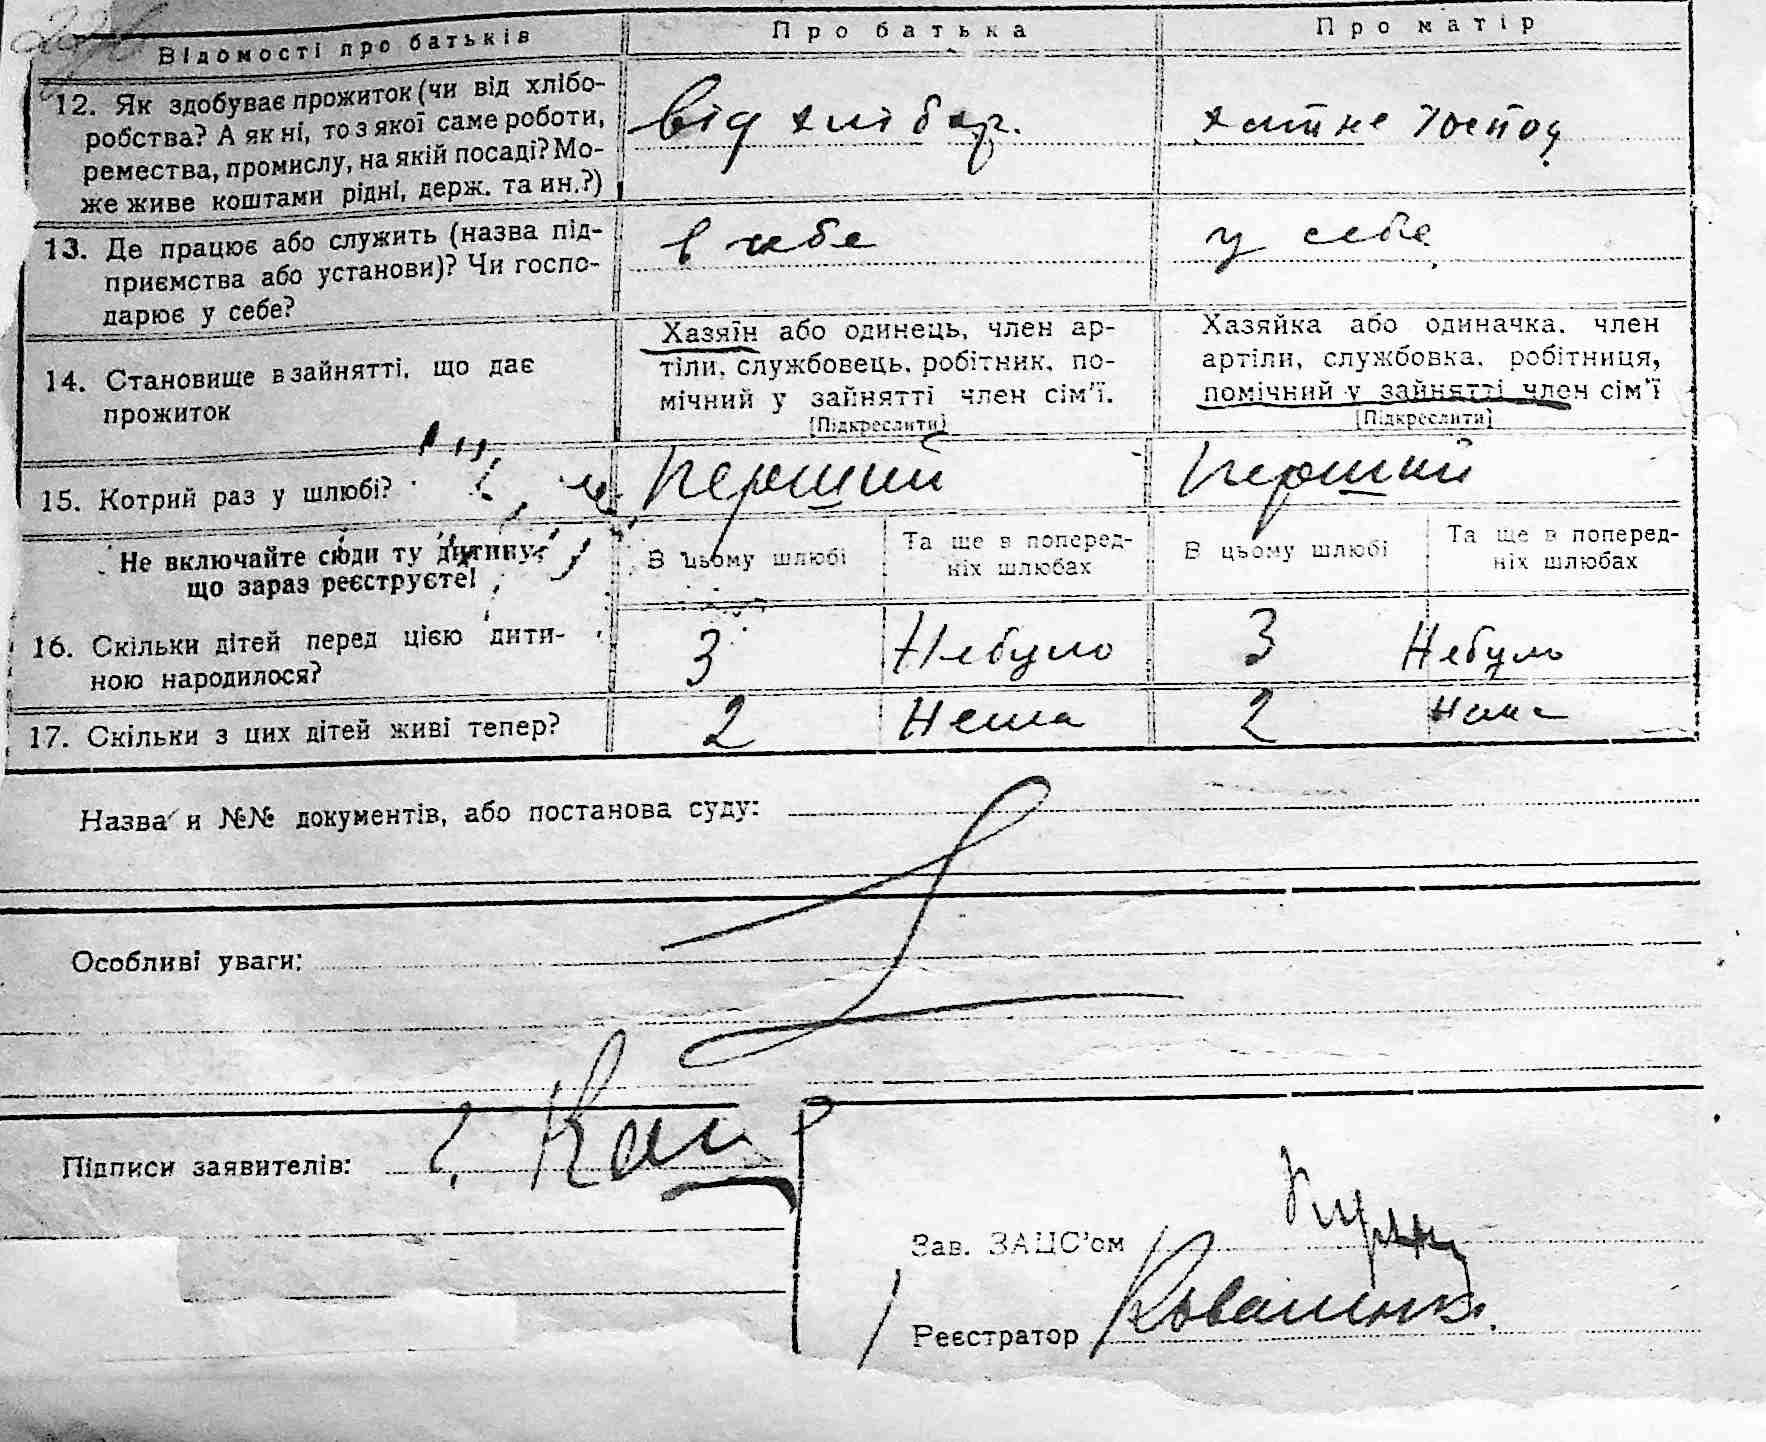 Відомості про батьків
Про батька
Про матір
12. Як здобуває прожиток (чи від хлібо-
робства? А як ні, то з якої саме роботи,
ремества, промислу, на якій посаді? Мо-
же живе коштами рідні, держ. та ин.?)
від хлібор.
хатнє господ
13. Де працює або служить (назва під-
приємства або установи)? Чи госпо-
дарює у себе?
в себе
у себе
14. Становище в зайнятті, що дає
прожиток
Хазяїн або одинець, член ар-
тіли, службовець, робітник, по-
мічний у зайнятті член сім'ї.
[Підкреслити]
Хазяйка або одиначка, член
артіли, службовка, робітниця,
помічний у зайнятті член сім'ї
[Підкреслити]
15. Котрий раз у шлюбі?
Перший
Перший
Не включайте сюди ту дитину,
що зараз реєструєте!
В цьому шлюбі
Та ще в поперед-
ніх шлюбах
В цьому шлюбі
Та ще в поперед-
ніх шлюбах
16. Скільки дітей перед цією дити-
ною народилося?
3
Небуло
3
Небуло
17. Скільки з цих дітей живі тепер?
2
Нема
2
Нема
Назва и №№ документів, або постанова суду:
Особливі уваги:
Підписи заявителів:
Зав. ЗАЦС'ом
Реєстратор Коваленко